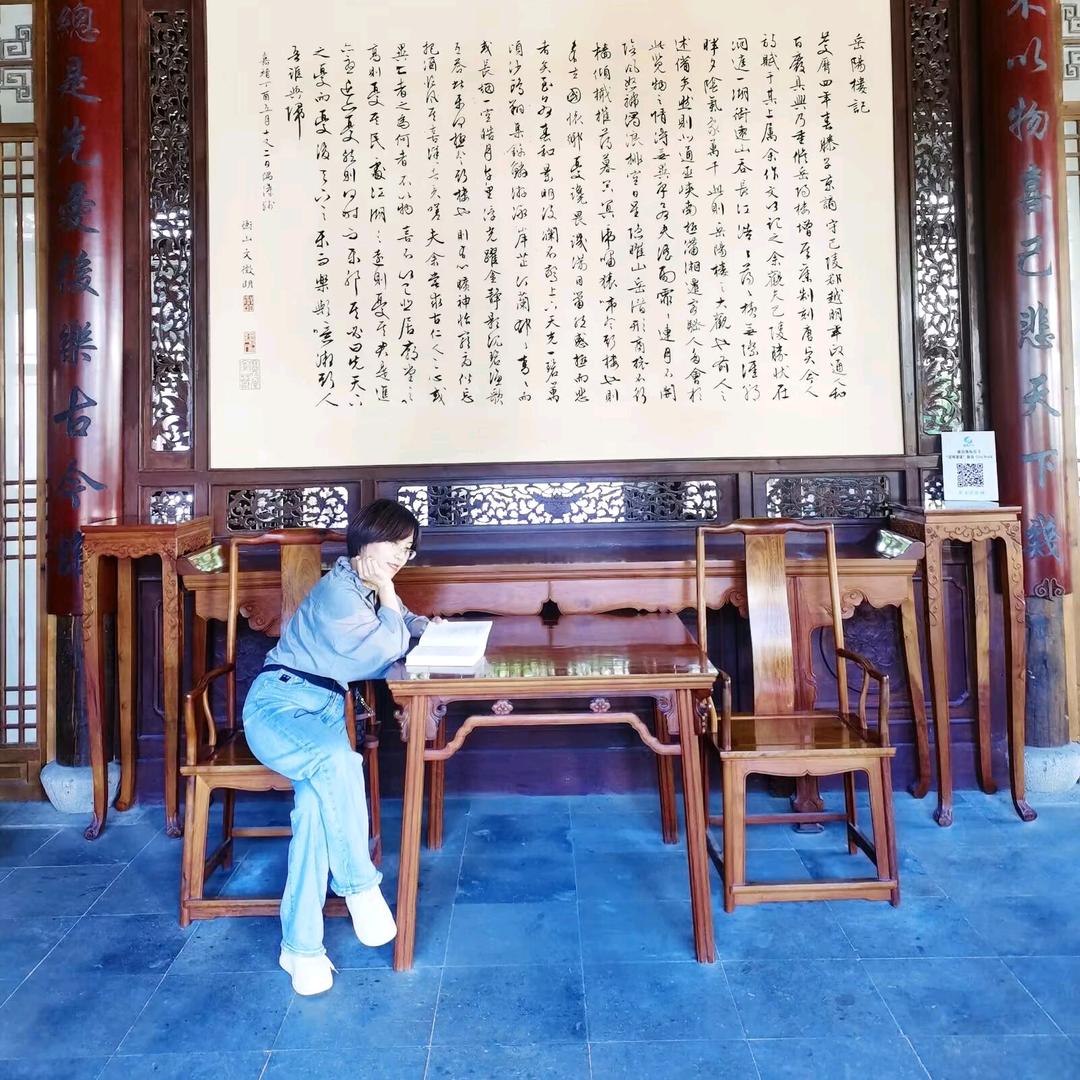 不以物喜己悲天下幾
岳陽樓記
慶曆四年春滕子京謫守巴陵郡越明年政通人和
百廢具興乃重修岳陽樓增其舊制刻唐賢今人
詩賦于其上屬余作文以記之余觀夫巴陵勝狀在
洞庭一湖銜遠山吞長江浩浩蕩蕩橫無際涯朝
暉夕陰氣象萬千此則岳陽樓之大觀也前人之
述備矣然則北通巫峽南極瀟湘遷客騷人多會於
此覽物之情得無異乎若夫淫雨霏霏連月不開
陰風怒號濁浪排空日星隱曜山岳潛形商旅不行
檣傾楫摧薄暮冥冥虎嘯猿啼登斯樓也則
有去國懷鄉憂讒畏譏滿目蕭然感極而悲
者矣至若春和景明波瀾不驚上下天光一碧萬
頃沙鷗翔集錦鱗游泳岸芷汀蘭郁郁青青而
或長煙一空皓月千里浮光躍金靜影沉璧漁歌
互答此樂何極登斯樓也則有心曠神怡寵辱俱忘
把酒臨風其喜洋洋者矣嗟夫余嘗求古仁人之心或
異二者之為何哉不以物喜不以己悲居廟堂之
高則憂其民處江湖之遠則憂其君是進
亦憂退亦憂然則何時而樂耶其必曰先天下
之憂而憂後天下之樂而樂歟噫微斯人
吾誰與歸
嘉靖丁酉五月十又二日偶
衡山文徵明
總是先憂後樂古今